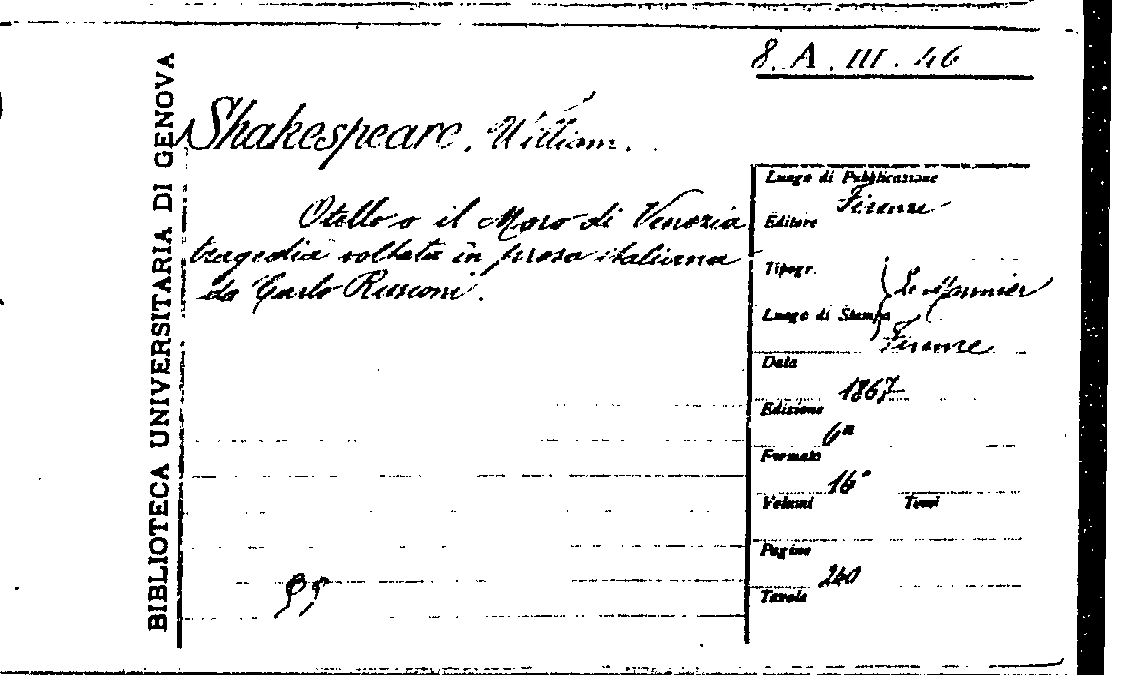 8. A. III. 46
BIBLIOTECA UNIVERSITARIA DI GENOVA
Shakespeare, William.
Otello o il Moro di Venezia
tragedia voltata in prosa italiana
da Carlo Rusconi.
Luogo di Pubblicazione
Firenze
Editore
Tipogr.
Le Monnier
Luogo di Stampa
Firenze
Data
1867
Edizione
6ª
Formato
16°
Volumi Tomi
Pagine
240
Tavole